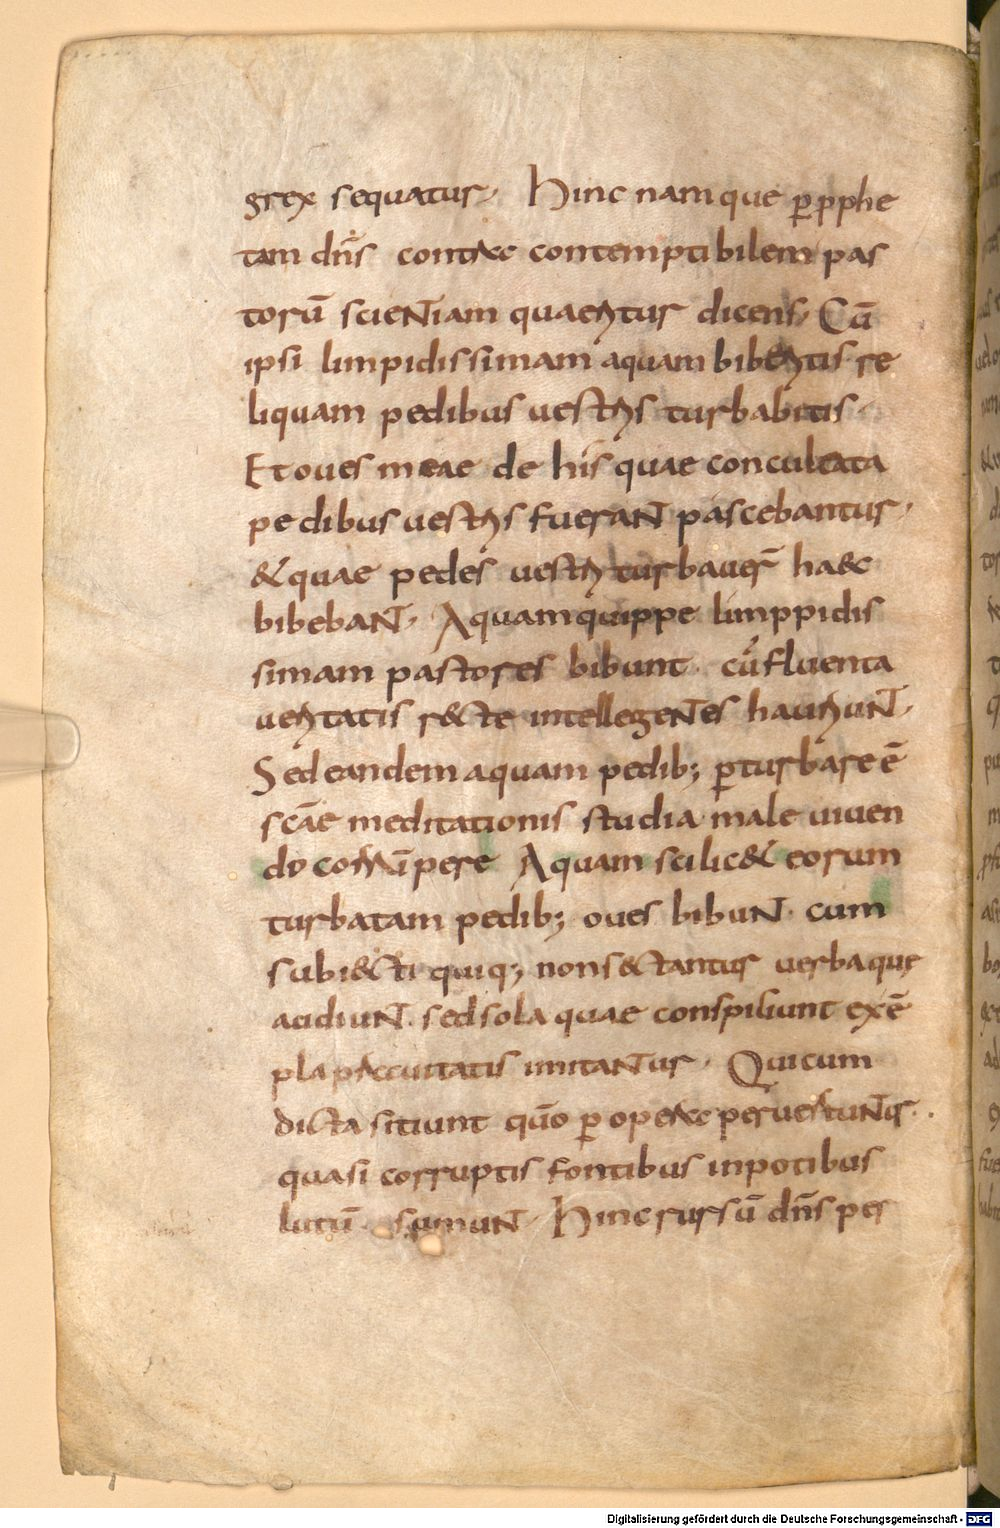 grex sequatur· Hinc namque ꝑpphe
tam dn̄s contra contemptibilem pas
torū scientiam quaeritur dicens· Cū
ipsi limpidissimam aquam biberitis· re
liquam pedibus uestris turbabitis·
Et oues meae de his quae conculcata
pedibus uestris fuerant pascebantur·
& quae pedes uestri turbauer̄ haec
bibebant· Aquam quippe limppidis
simam pastores bibunt· cū fluenta
ueritatis r&cte intellegentes hauriunt·
Sed eandem aquam pedib; ꝑturbare ē
scāe meditationis studia male uiuen
do corrūpere Aquam scilic& eorum
turbatam pedib; oues bibunt· cum
subi&cti quiq; non s&ctantur uerba que
acidiunt· sed sola quae conspiliunt exē
pla prauitatis imitantur· Qui cum
dicta sitiunt quō ꝑ opera peruertuntur·
quasi corruptis fontibus in potibus
lutū sumunt· Hinc rursū dn̄s per
Digitalisierung gefördert durch die Deutsche Forschungsgemeinschaft - DFG